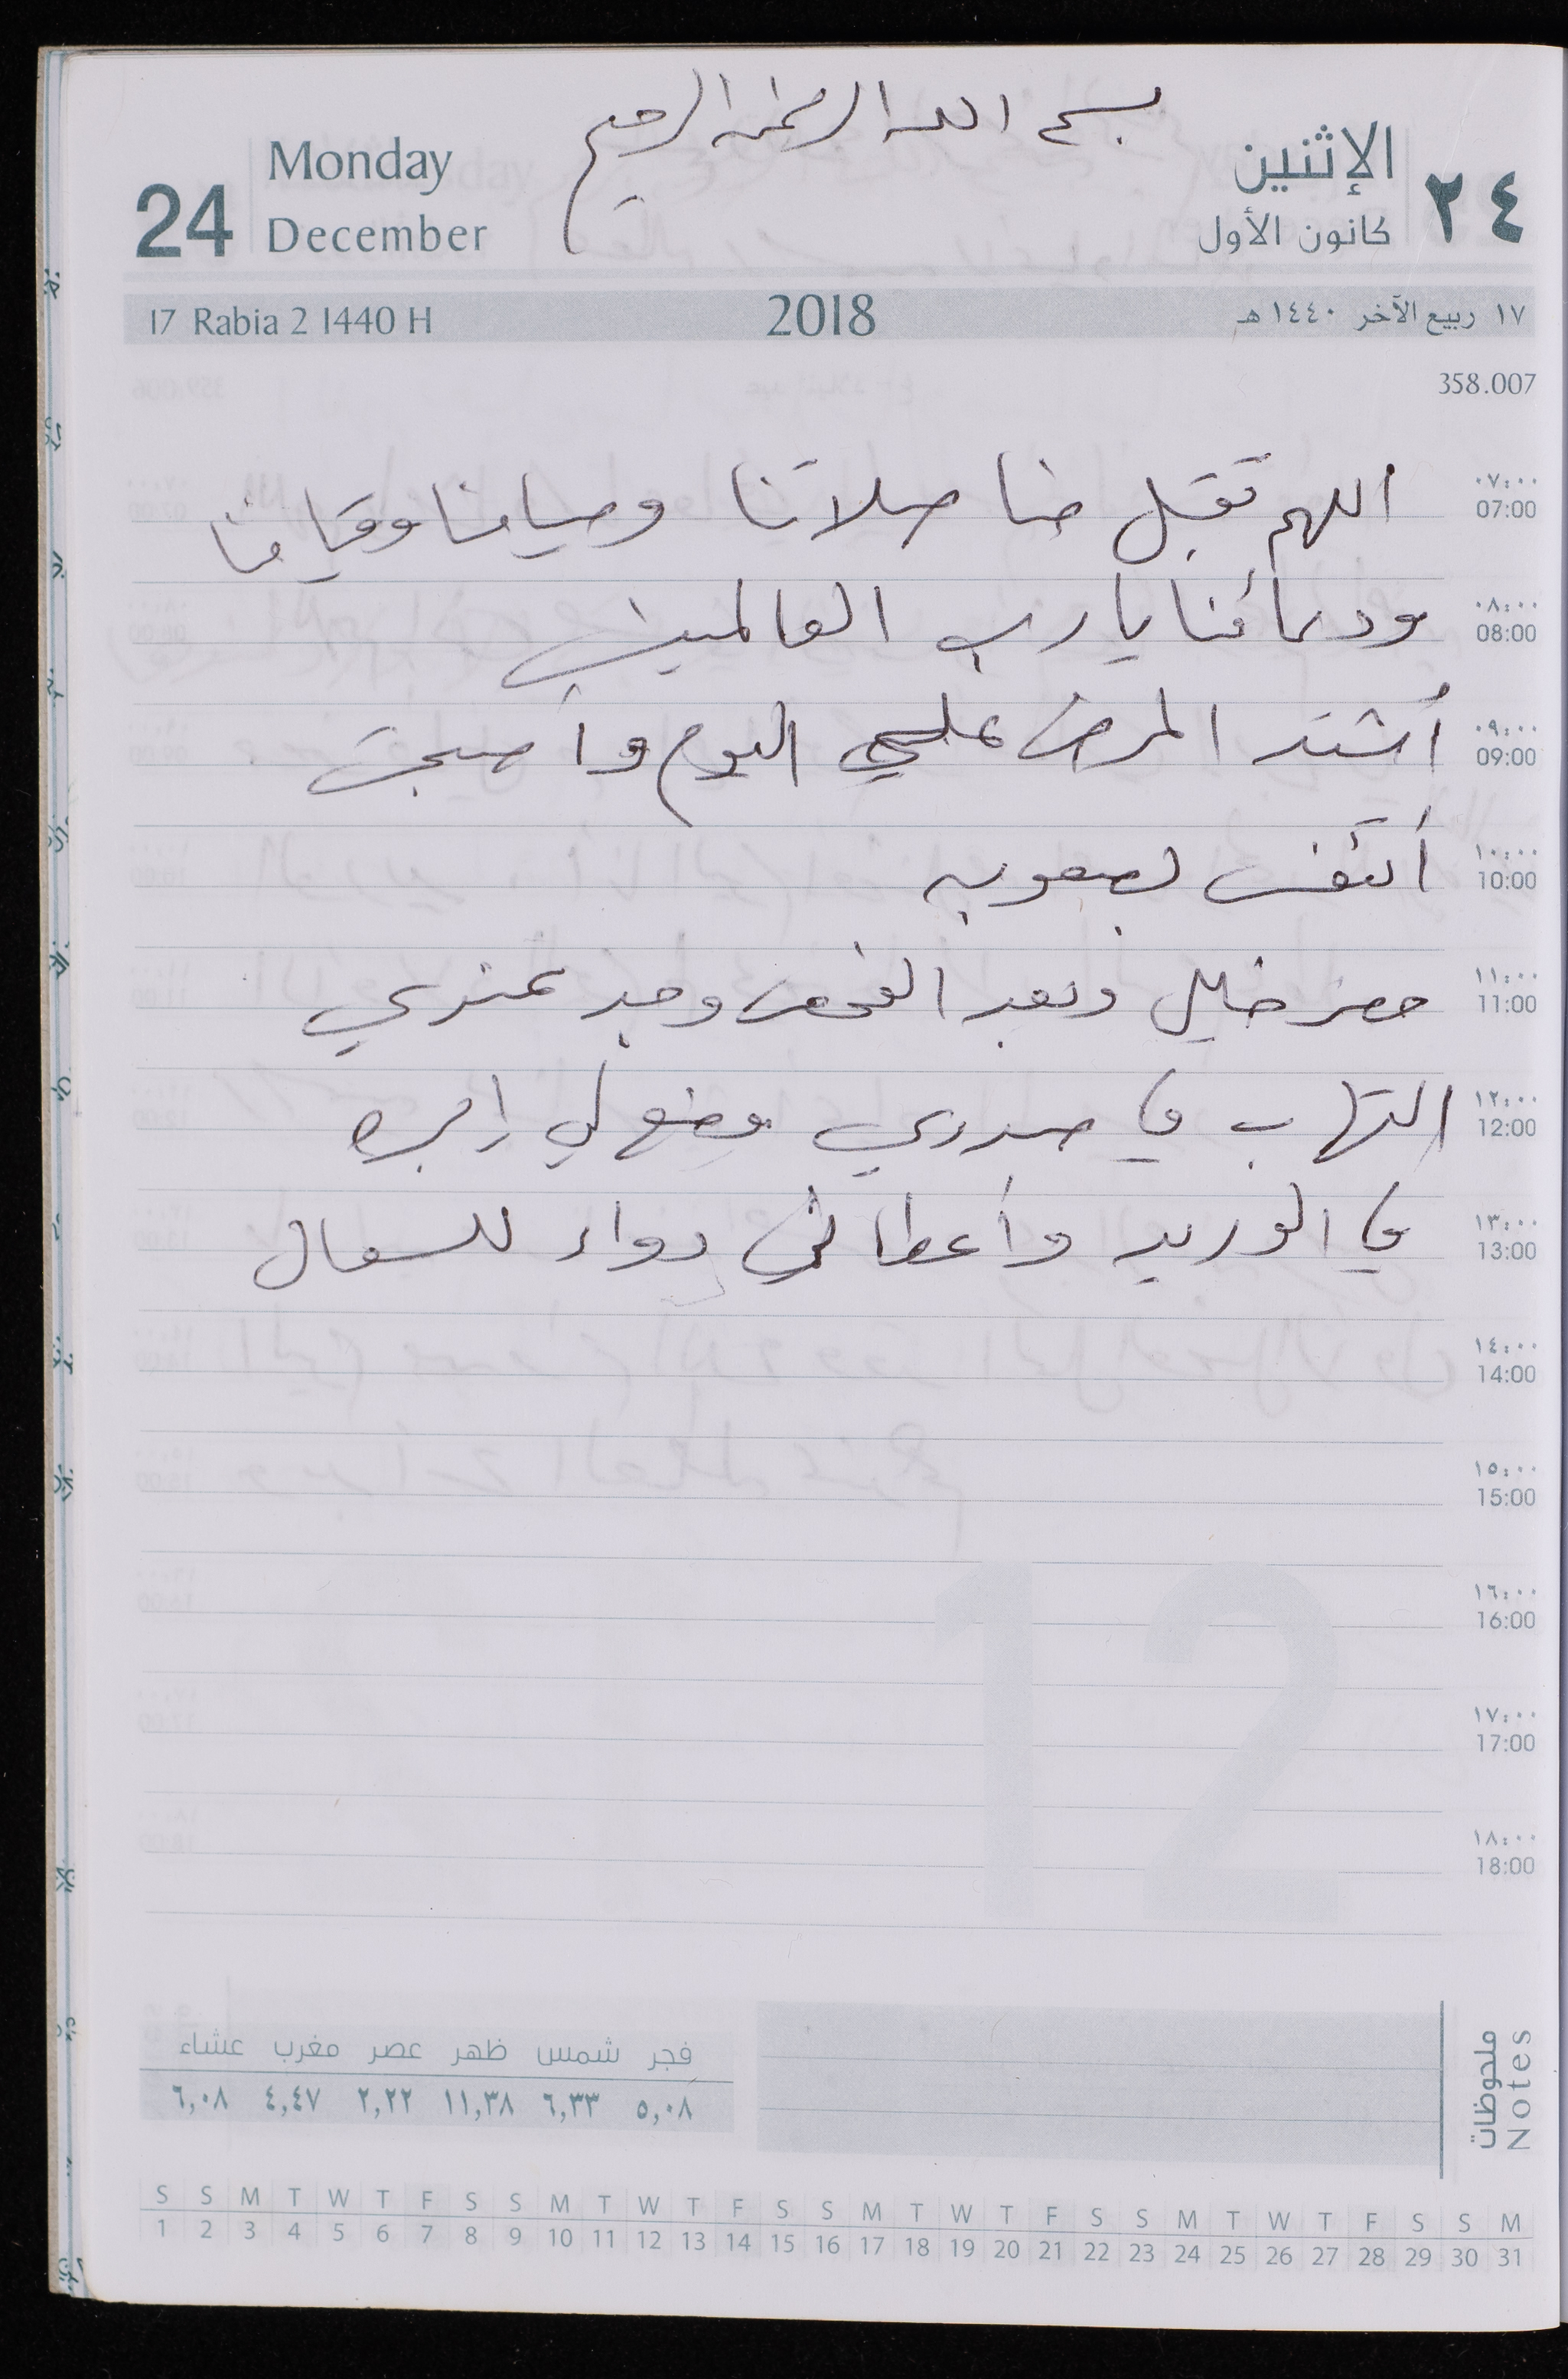 بسم الله الرحمن الرحيم
24 Monday December
الإثنين ٢٤
كانون الأول
17 Rabia 2 1440 H 2018 ١٧ ربيع الآخر ١٤٤٠ هـ
358.007
٠٧:٠٠
07:00
اللهم تقبل منا صلاتنا وصيامنا وقيامنا
٠٨:٠٠
08:00
ودعائنا يارب العالمين
٠٩:٠٠
09:00
أشتد المرض علي اليوم وأصبحت
١٠:٠٠
10:00
أتنفس بصعوبه
١١:٠٠
11:00
حضر خليل وبعد الفحص وجد عندي
١٢:٠٠
12:00
التهاب في صدري وضع لي إبره
١٣:٠٠
13:00
في الوريد وأعطاني دواء للسعال
١٤:٠٠
14:00
١٥:٠٠
15:00
12
١٦:٠٠
16:00
١٧:٠٠
17:00
١٨:٠٠
18:00
ملحوظات
Notes
فجر شمس ظهر عصر مغرب عشاء
٥,٠٨ ٦,٣٣ ١١,٣٨ ٢,٢٢ ٤,٤٧ ٦,٠٨
S S M T W T F S S M T W T F S S M T W T F S S M T W T F S S M
1 2 3 4 5 6 7 8 9 10 11 12 13 14 15 16 17 18 19 20 21 22 23 24 25 26 27 28 29 30 31